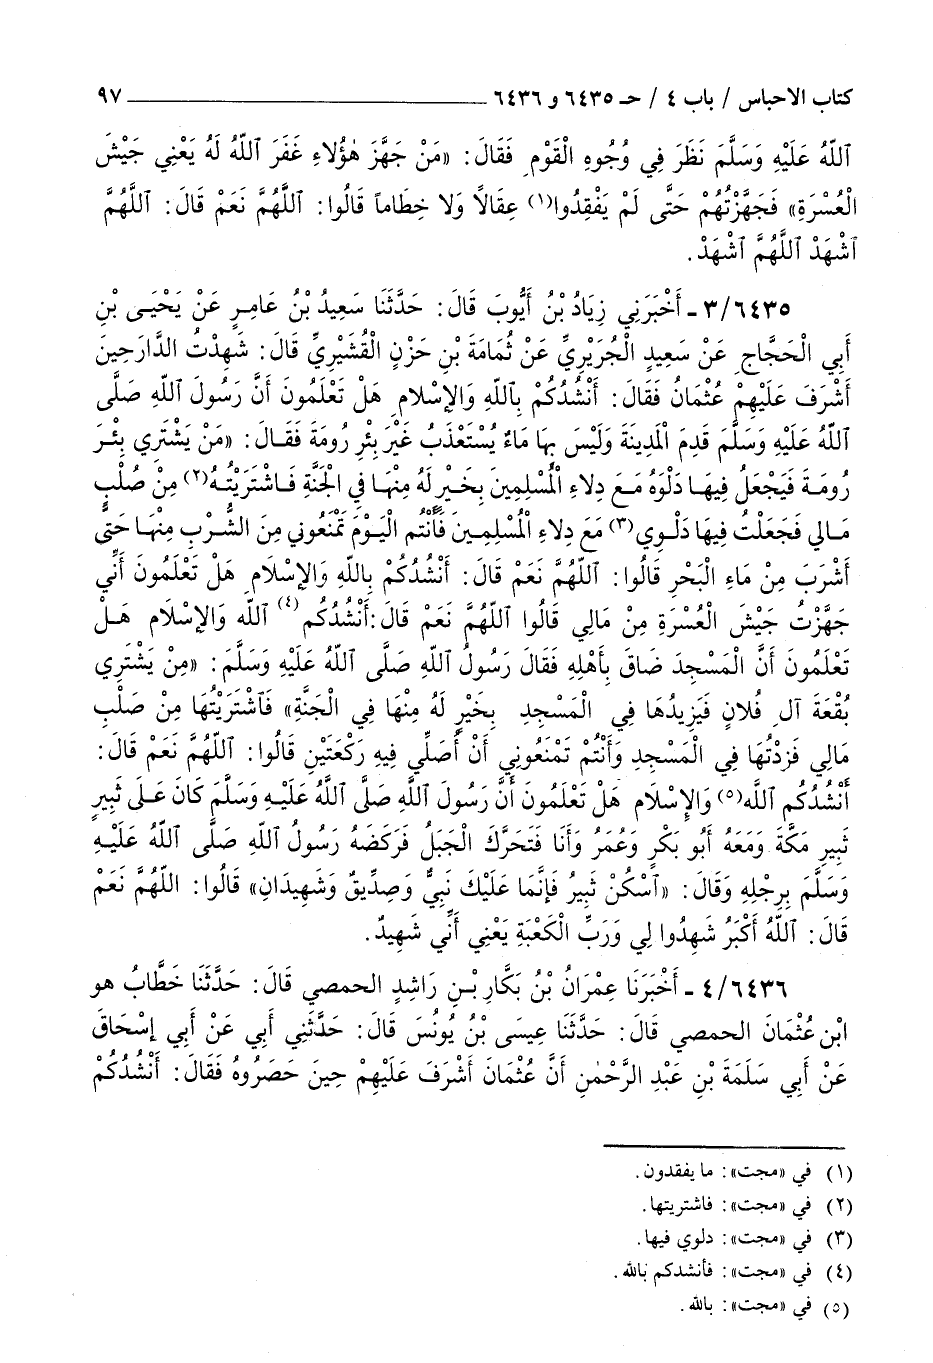 كتاب الاحباس / باب ٤ / حـ ٦٤٣٥ و ٦٤٣٦ ــــــــــــــــــــــــــــــــ ٩٧
ٱللّٰهُ عَلَيْهِ وَسَلَّمَ نَظَرَ فِي وُجُوهِ الْقَوْمِ فَقَالَ: «مَنْ جَهَّزَ هٰؤُلاءِ غَفَرَ ٱللّٰهُ لَهُ يَعْنِي جَيْشَ
الْعُسْرَةِ» فَجَهَّزْتُهُمْ حَتَّى لَمْ يَفْقِدُوا(١) عِقَالًا وَلا خِطَاماً قَالُوا: ٱللَّهُمَّ نَعَمْ قَالَ: ٱللَّهُمَّ
ٱشْهَدْ ٱللَّهُمَّ ٱشْهَدْ.
٣/٦٤٣٥ ـ أَخْبَرَنِي زِيَادُ بْنُ أَيُّوبَ قَالَ: حَدَّثَنَا سَعِيدُ بْنُ عَامِرٍ عَنْ يَحْيَى بْنِ
أَبِي الْحَجَّاجِ عَنْ سَعِيدٍ الْجُرَيْرِيِّ عَنْ ثُمَامَةَ بْنِ حَزْنٍ الْقُشَيْرِيِّ قَالَ: شَهِدْتُ الدَّارَحِينَ
أَشْرَفَ عَلَيْهِمْ عُثْمَانُ فَقَالَ: أَنْشُدُكُمْ بِاَللّٰهِ وَالإِسْلامِ هَلْ تَعْلَمُونَ أَنَّ رَسُولَ ٱللّٰهِ صَلَّى
ٱللّٰهُ عَلَيْهِ وَسَلَّمَ قَدِمَ الْمَدِينَةَ وَلَيْسَ بِهَا مَاءٌ يُسْتَعْذَبُ غَيْرَ بِئْرِ رُومَةَ فَقَـالَ: «مَنْ يَشْتَرِي بِئْـرَ
رُومَـةَ فَيَجْعَلُ فِيهَـا دَلْوَهُ مَـعَ دِلاءِ الْمُسْلِمِينَ بِخَيْرٍ لَهُ مِنْهَـا فِي الْجَنَّةِ فَـاشْتَرَيْتُـهُ(٢) مِنْ صُلْبِ
مَـالِي فَجَعَلْتُ فِيهَا دَلْـوِي(٣) مَعَ دِلاءِ الْمُسْلِمِينَ فَأَنْتُم الْيَـوْمَ تَمْنَعُونِي مِنَ الشُّرْبِ مِنْهَـا حَتَّى
أَشْرَبَ مِنْ مَاءِ الْبَحْرِ قَالُوا: ٱللَّهُمَّ نَعَمْ قَالَ: أَنْشُدُكُمْ بِاللّٰهِ وَالإِسْلامِ هَلْ تَعْلَمُونَ أَنِّي
جَهَّزْتُ جَيْشَ الْعُسْرَةِ مِنْ مَالِي قَالُوا ٱللَّهُمَّ نَعَمْ قَالَ:أَنْشُدُكُم(٤) ٱللّٰهَ وَالإِسْلَامِ هَـلْ
تَعْلَمُونَ أَنَّ الْمَسْجِدَ ضَاقَ بِأَهْلِهِ فَقَالَ رَسُولُ ٱللّٰهِ صَلَّى ٱللّٰهُ عَلَيْهِ وَسَلَّمَ: «مِنْ يَشْتَرِي
بُقْعَةَ آلِ فُلَانٍ فَيَزِيدُهَا فِي الْمَسْجِدِ بِخَيْرٍ لَهُ مِنْهَا فِي الْجَنَّةِ» فَاَشْتَرَيْتُهَا مِنْ صَلْبِ
مَالِي فَزِدْتُهَا فِي الْمَسْجِدِ وَأَنْتُمْ تَمْنَعُونِي أَنْ أُصَلِّي فِيهِ رَكْعَتَيْنِ قَالُوا: ٱللَّهُمَّ نَعَمْ قَالَ:
أَنْشُدُكُم ٱللَّه(٥) وَالإِسْلَامِ هَلْ تَعْلَمُونَ أَنَّ رَسُولَ ٱللّٰهِ صَلَّى ٱللّٰهُ عَلَيْـهِ وَسَلَّمَ كَانَ عَلَـى ثَبِيرٍ
ثَبِيرِ مَكَّةَ وَمَعَهُ أَبُو بَكْرٍ وَعُمَرُ وَأَنَا فَتَحَرَّكَ الْجَبَلُ فَرَكَضَهُ رَسُولُ ٱللّٰهِ صَلَّى ٱللّٰهُ عَلَيْـهِ
وَسَلَّمَ بِرِجْلِهِ وَقَالَ: «ٱسْكُنْ ثَبِيرُ فَإِنَّمَا عَلَيْكَ نَبِيٌّ وَصِدِّيقٌ وَشَهِيدَانِ» قَالُوا: اللَّهُمَّ نَعَمْ
قَالَ: ٱللّٰهُ أَكْبَرُ شَهِدُوا لِي وَرَبِّ الْكَعْبَةِ يَعْنِي أَنِّي شَهِيدٌ.
٤/٦٤٣٦ ـ أَخْبَرَنَا عِمْرَانُ بْنُ بَكَّارِ بْـنِ رَاشِدٍ الحمصي قَالَ: حَدَّثَنَا خَطَّابُ هو
ابْن عُثْمَانَ الحمصي قَالَ: حَدَّثَنَا عِيسَى بْنُ يُونُسَ قَالَ: حَدَّثَنِي أَبِي عَنْ أَبِي إِسْحَاقَ
عَنْ أَبِي سَلَمَةَ بْنِ عَبْدِ الرَّحْمٰنِ أَنَّ عُثْمَانَ أَشْرَفَ عَلَيْهِم حِينَ حَصَرُوهُ فَقَالَ: أَنْشُدُكُمْ
(١) في «مجت»: ما يفقدون.
(٢) في «مجت»: فاشتريتها.
(٣) في «مجت»: دلوي فيها.
(٤) في «مجت»: فأنشدكم بالله.
(٥) في «مجت»: بالله.